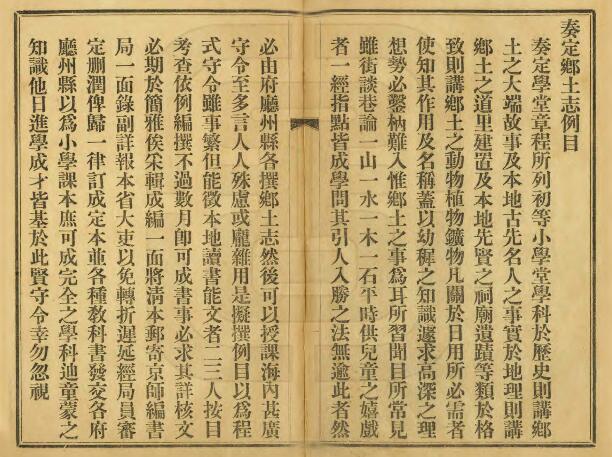 奏定鄉土志例目
奏定學堂章程所列初等小學堂學科於歷史則講鄉
土之大端故事及本地古先名人之事實於地理則講
鄉土之道里建置及本地先賢之祠廟遺蹟等類於格
致則講鄉土之動物植物鑛物凡關於日用所必需者
使知其作用及名稱蓋以幼穉之知識遽求高深之理
想勢必鑿枘難入惟鄉土之事爲耳所習聞目所常見
雖街談巷論一山一水一木一石平時供兒童之嬉戲
者一經指點皆成學問其引人入勝之法無逾此者然
必由府廳州縣各撰鄉土志然後可以授課海內甚廣
守令至多言人人殊慮或龐雜用是擬撰例目以爲程
式守令雖事繁但能徵本地讀書能文者二三人按目
考查依例編撰不過數月卽可成書事必求其詳核文
必期於簡雅俟采輯成編一面將淸本郵寄京師編書
局一面錄副詳報本省大吏以免轉折遲延經局員審
定刪潤俾歸一律訂成定本並各種敎科書發交各府
廳州縣以爲小學課本庶可成完全之學科迪童蒙之
知識他日進學成才皆基於此賢守令幸勿忽視